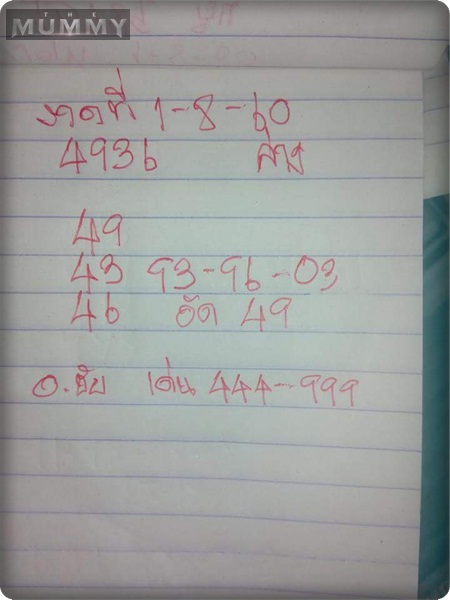 THE
MUMMY
งวดที่ 1-8-60
4936 ล่าง
49
43 93-96-03
46 อัด 49
อ.ชัย เด่น 444-999